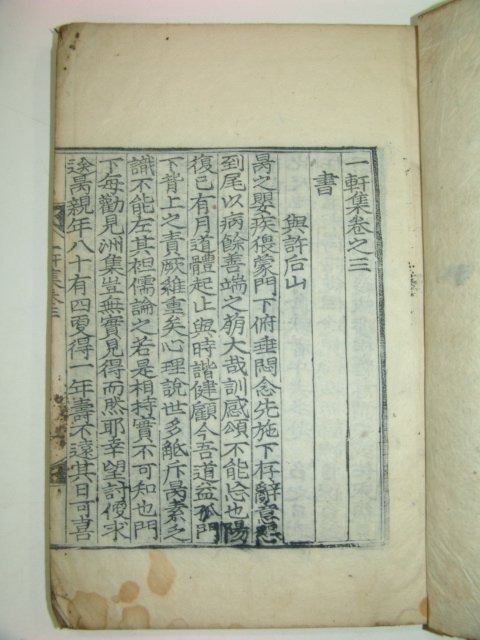 一軒集卷之三
書
與許后山
昺之嬰疾猥蒙門下俯垂悶念先施下存辭意懇
到尾以病餘善端之萌大哉訓感頌不能忘也陽
復已有月道體起止與時諧健顧今吾道益孤門
下背上之責厥維重矣心理說世多觝斥昺素乏
識不能左其袒儒論之若是相持實不可知也門
下每勸見洲集豈無實見得而然耶幸望討傾求
遂昺親年八十有四更得一年壽不遠其日可喜
一軒集卷三